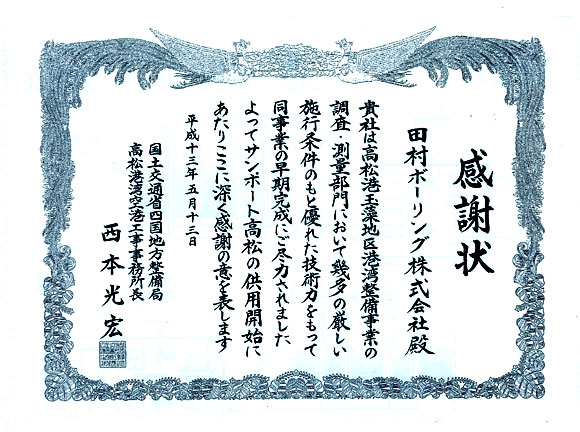 感謝状
田村ボーリング株式会社殿
貴社は高松港玉藻地区港湾整備事業の
調査・測量部門において幾多の厳しい
施行条件のもと優れた技術力をもって
同事業の早期完成にご尽力されました
よってサンポート高松の供用開始に
あたりここに深く感謝の意を表します
平成十三年五月十三日
国土交通省四国地方整備局
高松港湾空港工事事務所長
西本光宏